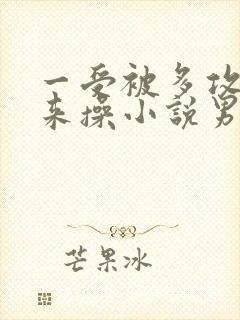 一受被多攻
来操小说男
芒果冰